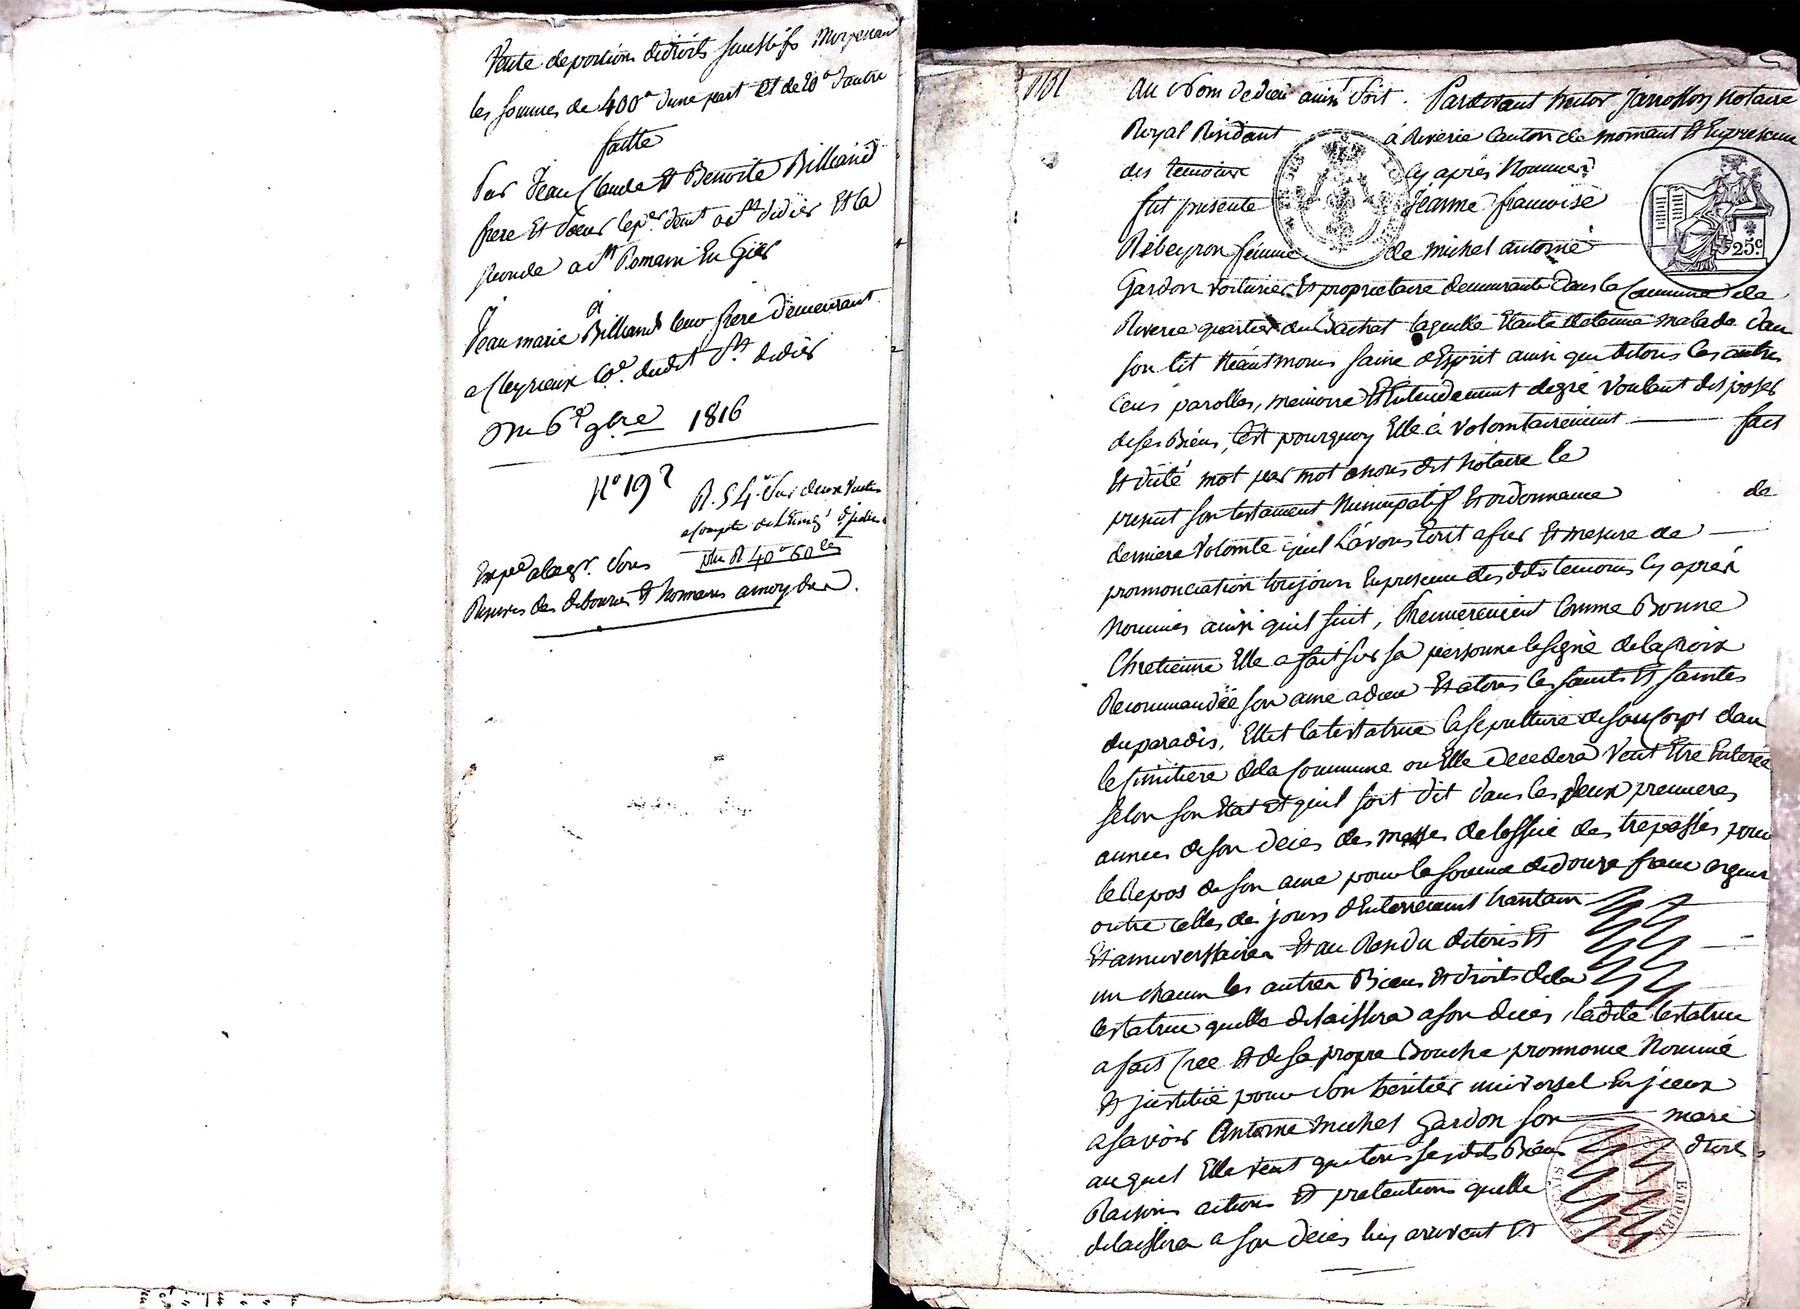 Vente de portions de droits successifs moyenant
les sommes de 400# d'une part et de 20# d'autre
faitte
Par Jean Claude et Benoite Billiand
frere et soeur le per demt a st didier et la
seconde a st Romain en Gier
A
Jean marie Billiand leur frere demeurant
a Cleyrieux Coe dudit St didier
Du 6e 9bre 1816
No 192
R. 54# sur deux ventes
a compte de l'Enregt
plus R 40# 60 ces
Expée alaqr. sous
Reserves des debourses et honnaires a moy dus.
au Nom de dieu ainsi soit. Pardevant hector Jarrosson Notaire
Royal Residant à Riverie Canton de mornant et En presence
des temoins cy après Nommés
fut presente Jeanne francoise
Ribeyron femme de michel antoine
Gardon voiturier et proprietaire demeurante dans la Commune de
Riverie quartier du Bachat laquelle Etante detenue malade dans
son lit Néantmoins saine d'Esprit ainsi que de tous les autres
cens parolles, memoire et Entendement de gré voulant disposer
de ses Biens, C'est pourquoy Elle à volontairement fait
Et dicté mot par mot a nous dit Notaire le
present son testament Nuncupatif Et ordonnance de
derniere volonté qu'il l'avons Ecrit a fur Et mesure de
pronnonciation toujours En presence des dits temoins cy après
Nommés ainsi quil suit, Premierement Comme Bonne
Chretienne Elle a fait sur sa personne le signe de la Croix
Recommandée son ame a dieu Et a tous les saints Et saintes
du paradis, Ellit la testatrice la sepulture de son Corps dans
le Cimitiere de la Commune ou Elle decedera veut Etre Enterée
selon son Etat et quil soit dit dans les deux premieres
années de son deces des messes de l'office des trepassés, pour
le Repos de son ame pour la somme de douze franc argent
outre celles des jours d'Enterrement trantain
Et anniversaire Et au Residu de tous Et
un chacun les autres Biens Et droits de la
testatrice quelle delaissera a son deces, ladite testatrice
a fait Cree Et de sa propre Bouche pronnoncé Nommé
et institué pour son heritier universel En jceux
a savoir Antoine michel Gardon son mari
au quel Elle veut que tous sesdits Biens droits
Raisons actions et pretentions quelle
delaissera a son deces luy arivent Et
25c.
EMPIRE